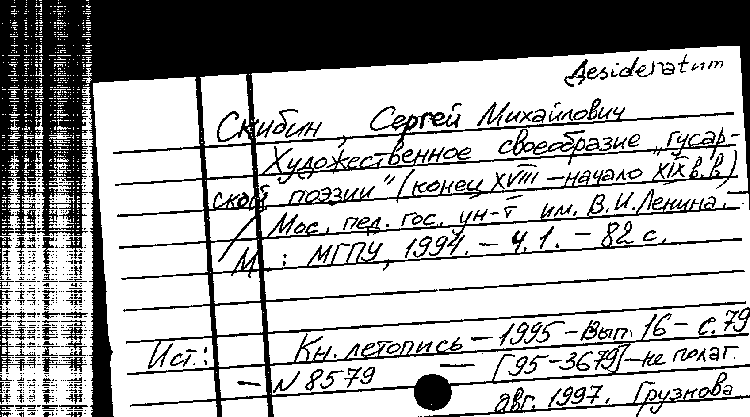 Desideratum
Скибин, Сергей Михайлович
Художественное своеобразие „гусар-
ской поэзии" (конец XVIII – начало XIX в.в)
/ Мос. пед. гос. ун-т им. В.И.Ленина. –
М.: МГПУ, 1994. – Ч.1. – 82 с.
Ист.: Кн. летопись – 1995 – Вып. 16 – с.79
– N 8579 – [95-3679] – не полаг.
авг. 1997. Грузнова